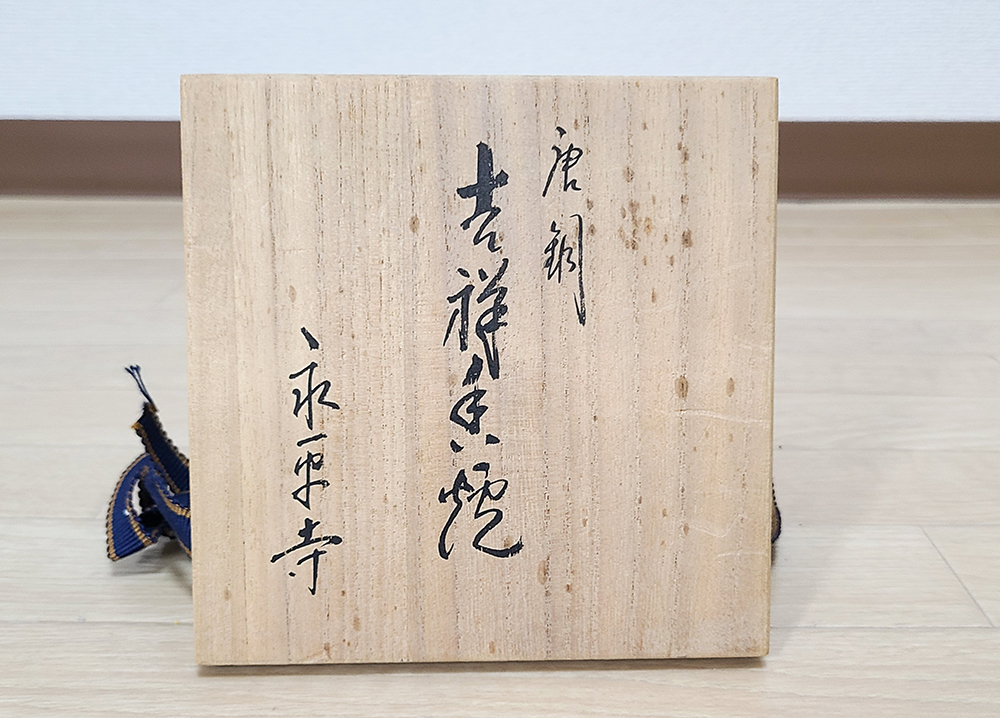 唐銅
吉祥香炉
永平寺